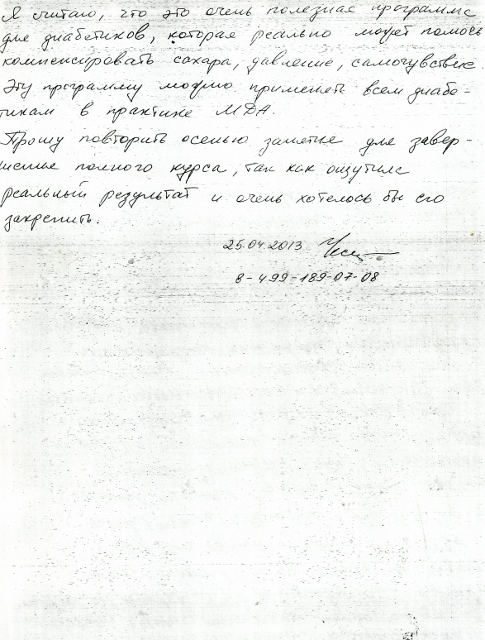 Я считаю, что это очень полезная программа
для диабетиков, которая реально может помочь
компенсировать сахара, давление, самочувствие.
Эту программу можно применять всем диабе-
тикам в практике МДА.
Прошу повторить осенью занятие для завер-
шения полного курса, так как ощутила
реальный результат и очень хотелось бы его
закрепить.
25.04.2013
8-499-189-07-08